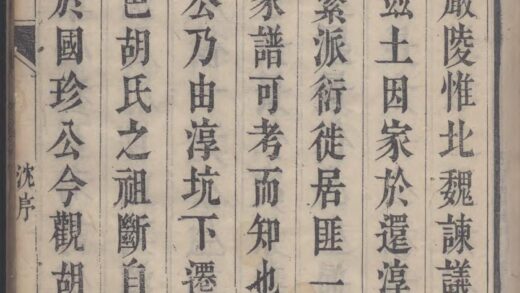 嚴陵惟北魏諫議
茲土因家於還淳
繁派衍徙居匪一
家譜可考而知也
公乃由淳坑下遷
邑胡氏之祖斷自
於國珍公今觀胡
沈序